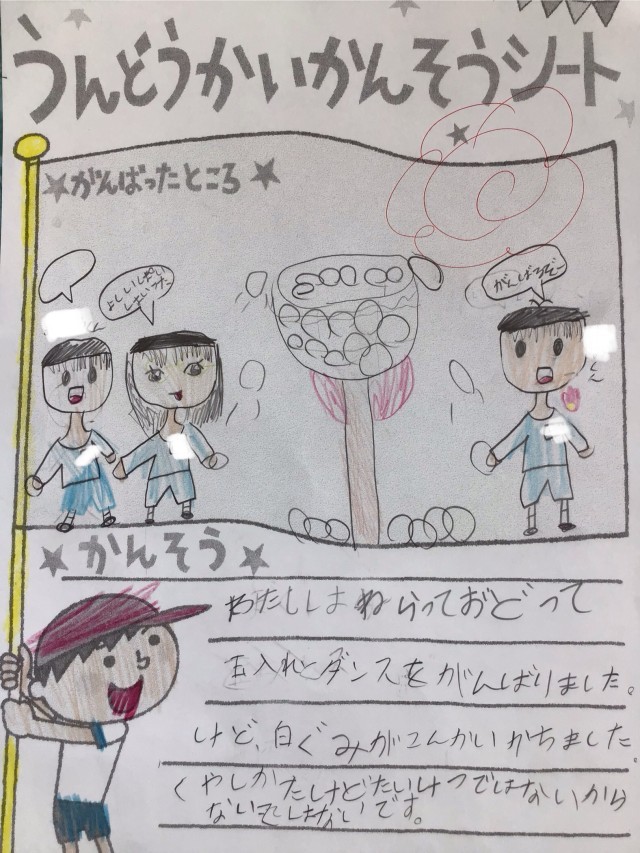 うんどうかいかんそうシート
がんばったところ
がんばるぞー
かんそう
わたしはねらっておどって
玉入れとダンスをがんばりました。
けど、白ぐみがこんかいかちました。
くやしかたけどたいけつではないから
です。